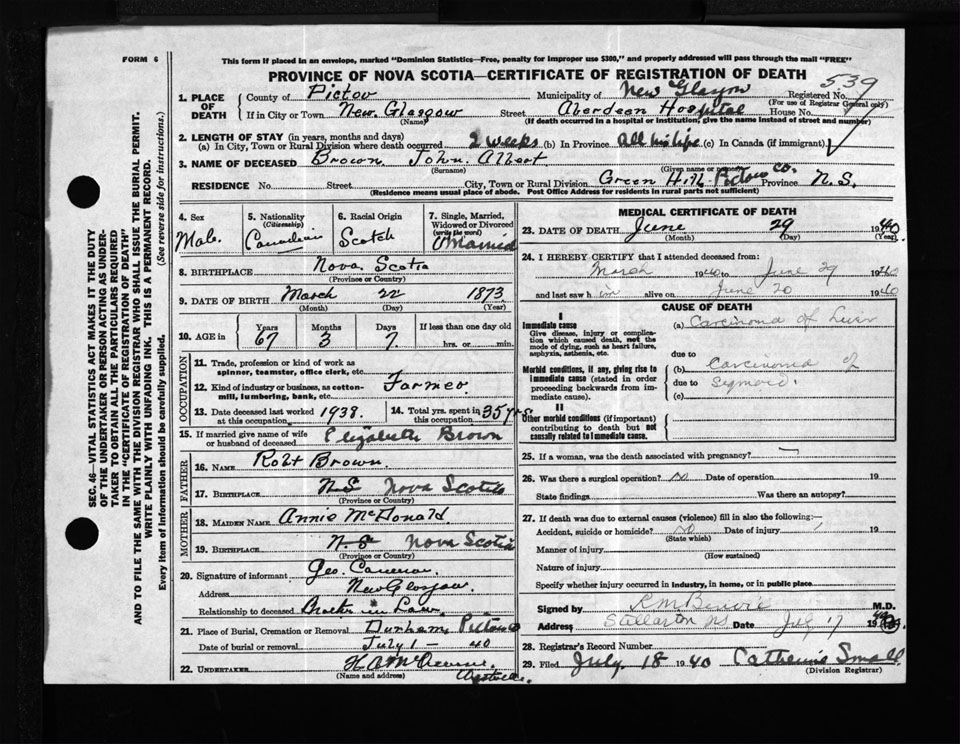 FORM 6
This form if placed in an envelope, marked "Dominion Statistics—Free, penalty for improper use $300," and properly addressed will pass through the mail "FREE"
PROVINCE OF NOVA SCOTIA—CERTIFICATE OF REGISTRATION OF DEATH
539
1. PLACE OF DEATH
County of Pictou Municipality of New Glasgow Registered No.
(For use of Registrar General only)
If in City or Town New Glasgow Street Aberdeen Hospital House No.
(Name) (If death occurred in a hospital or institution, give the name instead of street and number)
2. LENGTH OF STAY (in years, months and days)
(a) In City, Town or Rural Division where death occurred 2 weeks (b) In Province All his life (c) In Canada (if immigrant)
3. NAME OF DECEASED Brown John Albert
(Surname) (Given name or names)
RESIDENCE No. Street City, Town or Rural Division Green Hill Pictou Co. Province N.S.
(Residence means usual place of abode. Post Office Address for residents in rural parts not sufficient)
4. Sex Male
5. Nationality (Citizenship) Canadian
6. Racial Origin Scotch
7. Single, Married, Widowed or Divorced (write the word) Married
8. BIRTHPLACE Nova Scotia
(Province or Country)
9. DATE OF BIRTH March 22 1873
(Month) (Day) (Year)
10. AGE in Years 67 Months 3 Days 7 If less than one day old hrs. or min.
OCCUPATION
11. Trade, profession or kind of work as spinner, teamster, office clerk, etc.
12. Kind of industry or business, as cotton-mill, lumbering, bank, etc. Farmer
13. Date deceased last worked at this occupation 1938.
14. Total yrs. spent in this occupation 35 yrs
15. If married give name of wife or husband of deceased Elizabeth Brown
FATHER
16. NAME Robt Brown.
17. BIRTHPLACE N S Nova Scotia
(Province or Country)
MOTHER
18. MAIDEN NAME Annie McDonald.
19. BIRTHPLACE N. S Nova Scotia
(Province or Country)
20. Signature of informant Geo. Cameron
Address New Glasgow.
Relationship to deceased Brother in Law
21. Place of Burial, Cremation or Removal Durham Pictou Co
Date of burial or removal July 1 40
22. UNDERTAKER
(Name and address)
MEDICAL CERTIFICATE OF DEATH
23. DATE OF DEATH June 29 1940
(Month) (Day) (Year)
24. I HEREBY CERTIFY that I attended deceased from:
March 1940 to June 29 1940
and last saw him alive on June 20 1940
CAUSE OF DEATH
I
Immediate cause
Give disease, injury or complication which caused death, not the mode of dying, such as heart failure, asphyxia, asthenia, etc.
(a) Carcinoma of Liver
due to
Morbid conditions, if any, giving rise to immediate cause (stated in order proceeding backwards from immediate cause).
(b) Carcinoma of
due to Sigmoid.
(c)
II
Other morbid conditions (if important) contributing to death but not causally related to immediate cause.
25. If a woman, was the death associated with pregnancy?
26. Was there a surgical operation? No Date of operation 19
State findings Was there an autopsy?
27. If death was due to external causes (violence) fill in also the following:—
Accident, suicide or homicide? No Date of injury 19
(State which)
Manner of injury
(How sustained)
Nature of injury
Specify whether injury occurred in industry, in home, or in public place
Signed by M.D.
Address Stellarton NS Date July 17 19
28. Registrar's Record Number
29. Filed July 18 1940 Catherine Small
(Division Registrar)
SEC. 46—VITAL STATISTICS ACT MAKES IT THE DUTY OF THE UNDERTAKER OR PERSON ACTING AS UNDERTAKER TO OBTAIN ALL THE PARTICULARS REQUIRED IN THE "CERTIFICATE OF REGISTRATION OF DEATH" AND TO FILE THE SAME WITH THE DIVISION REGISTRAR WHO SHALL ISSUE THE BURIAL PERMIT.
WRITE PLAINLY WITH UNFADING INK. THIS IS A PERMANENT RECORD.
Every item of information should be carefully supplied. (See reverse side for instructions.)